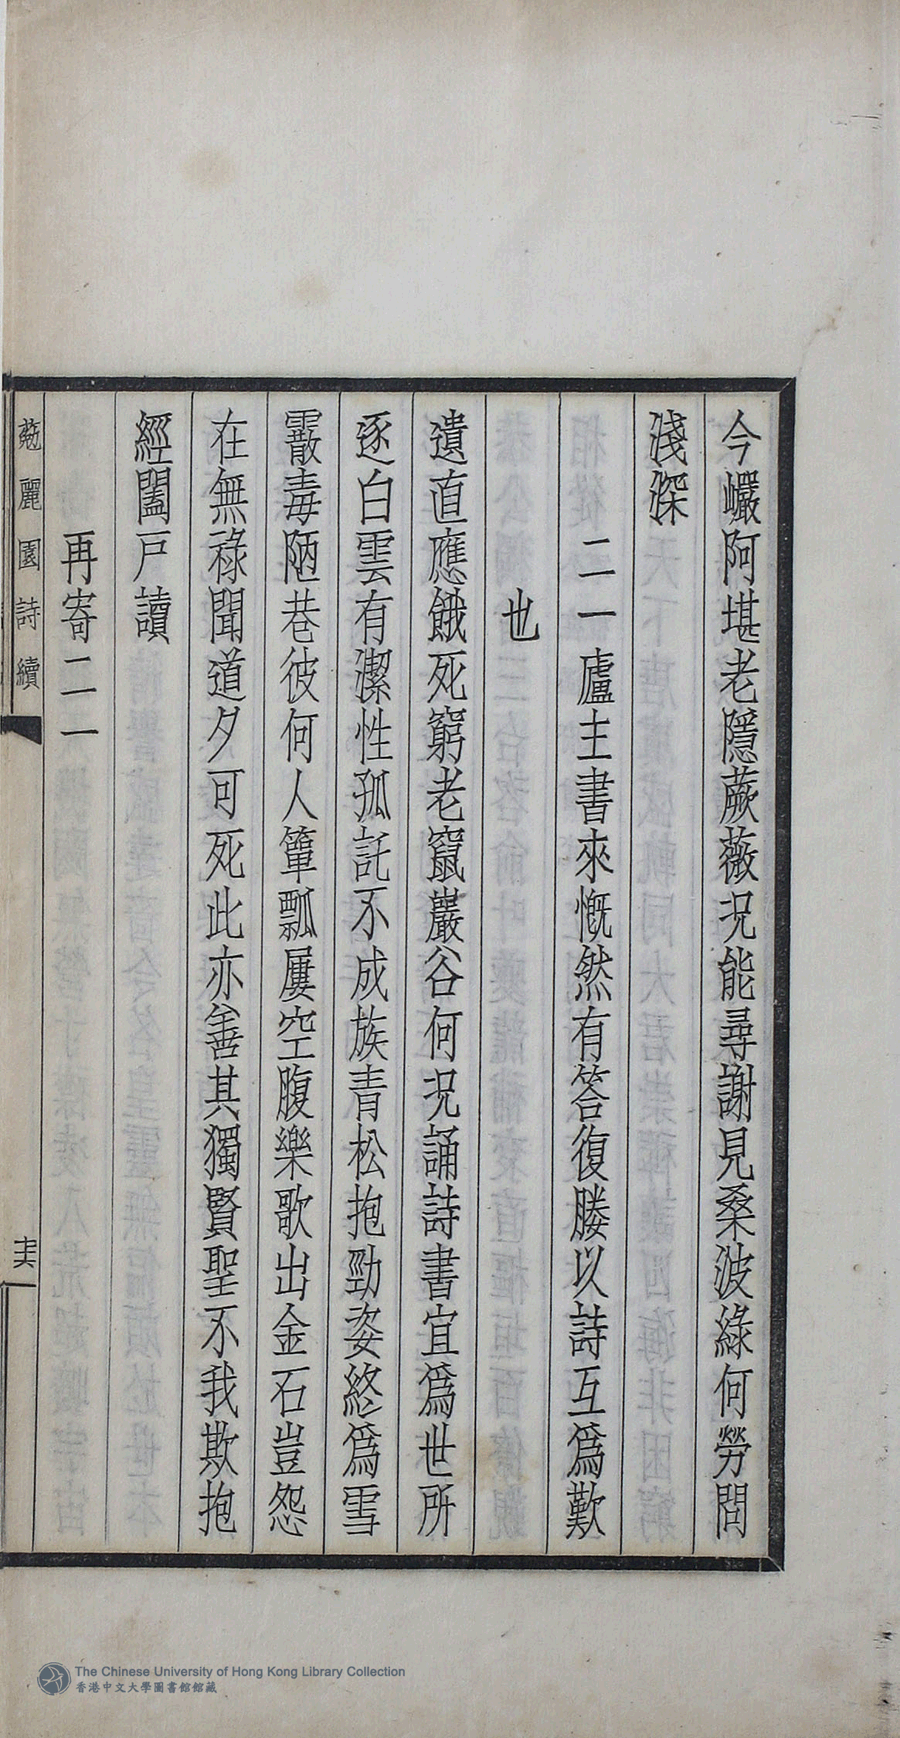 今巗阿堪老隱蕨薇况能尋謝見桑波綠何勞問
淺深
二一廬主書來慨然有答復媵以詩互爲歎
也
遺直應餓死窮老竄巖谷何况誦詩書宜爲世所
逐白雲有潔性孤託不成族青松抱勁姿終爲雪
霰毒陋巷彼何人簞瓢屢空腹樂歌出金石豈怨
在無祿聞道夕可死此亦善其獨賢聖不我欺抱
經闔戸讀
再寄二一
麗園詩續
The Chinese University of Hong Kong Library Collection
香港中文大學圖書館館藏